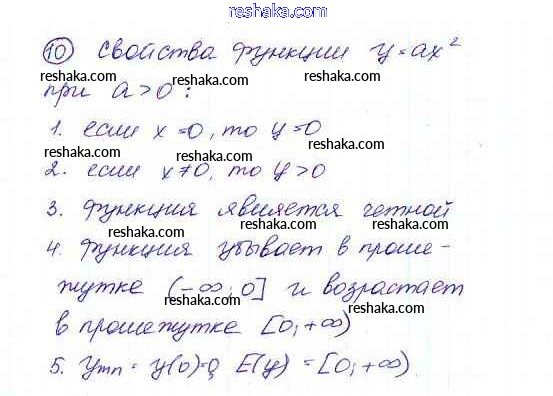 reshaka.com
10 Свойства функции y=ax²
reshaka.com reshaka.com
при a>0:
reshaka.com
1. если x=0, то y=0
reshaka.com reshaka.com
2. если x≠0, то y>0
reshaka.com
3. Функция является четной
reshaka.com reshaka.com
4. Функция убывает в проме-
reshaka.com
жутке (-∞; 0] и возрастает
reshaka.com reshaka.com
в промежутке [0; +∞)
reshaka.com
5. y min = y(0)=0, E(y) = [0; +∞).
reshaka.com reshaka.com